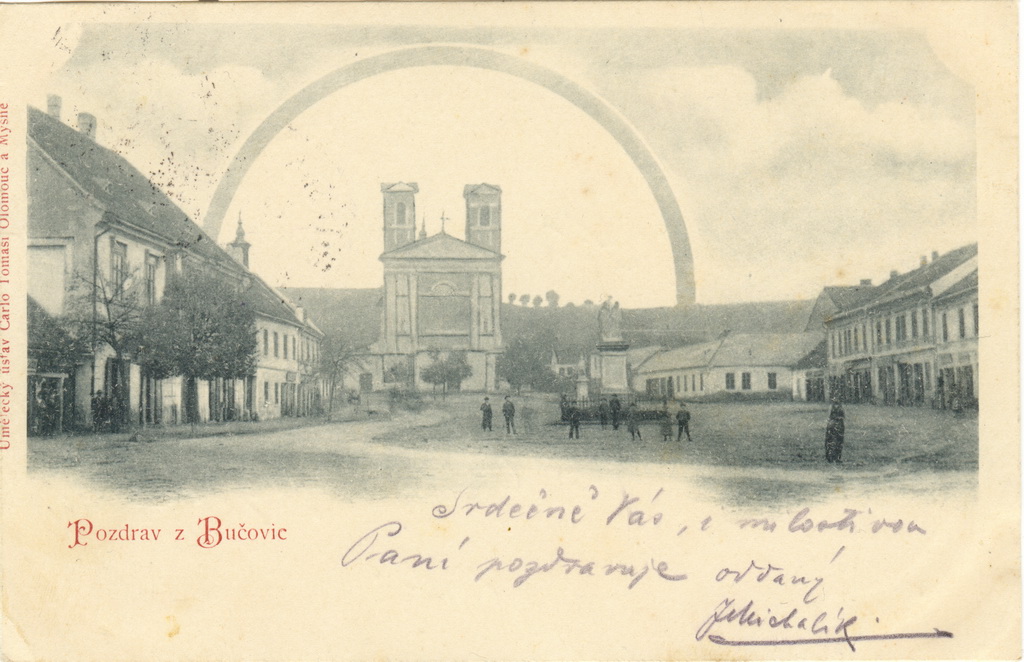 Umělecký ústav Carlo Tomasi Olomouc a
Pozdrav z Bučovic
Srdečně Vás, i milostivou
Paní pozdravuje oddaný
JMichalík.